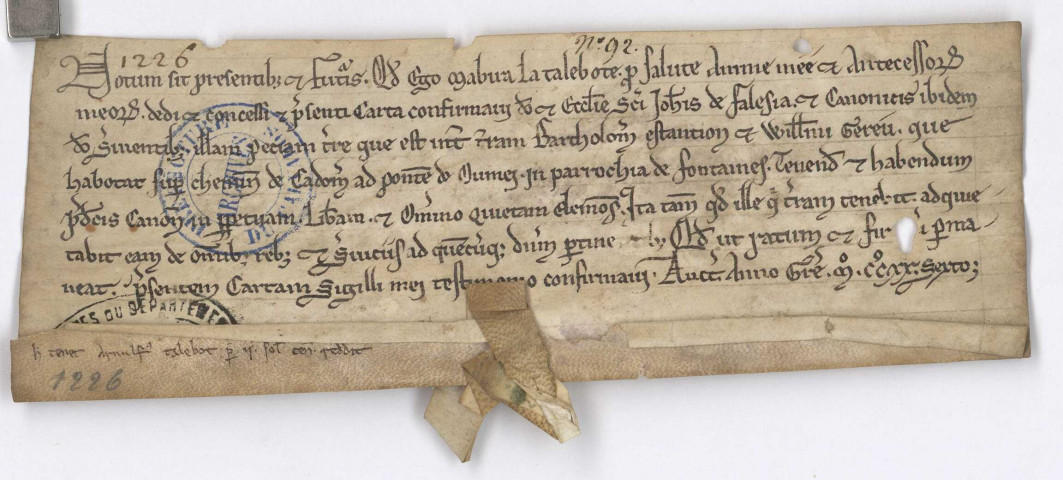 1226
nº 92.
Notum sit presentib; et Futis. Qd Ego Mabira La talebote. p salute Anime mee et Antecessorz
meorz. dedi et concessi et psenti Carta confirmavi do et Ecclie Sci Johis de falesia. et Canonicis ibidem
do Servientib; illam peciam tre que est int tram Bartholom estantion et Willmu Gereu. que
habotat sup chemin de Cadom ad ponte de Oumes. in parrochia de fontaines. Tenend et habendum
pdcis Canon in ppetuam. Libam. et Omnino quietam elemos. Ita tam qd ille q tram tenebit adquie
tabit eam de omib; reb; et Serviciis ad quecuq; dum ptine Qd ut ratum et fir i pma
neat. psentem Cartam Sigilli mei testimonio confirmavi. Actu Anno Gre. Mº. CCº. XXº. Sexto;
ES DU DEPARTEME
h tenet Arnulf talebot p ii. sol cen reddit
1226